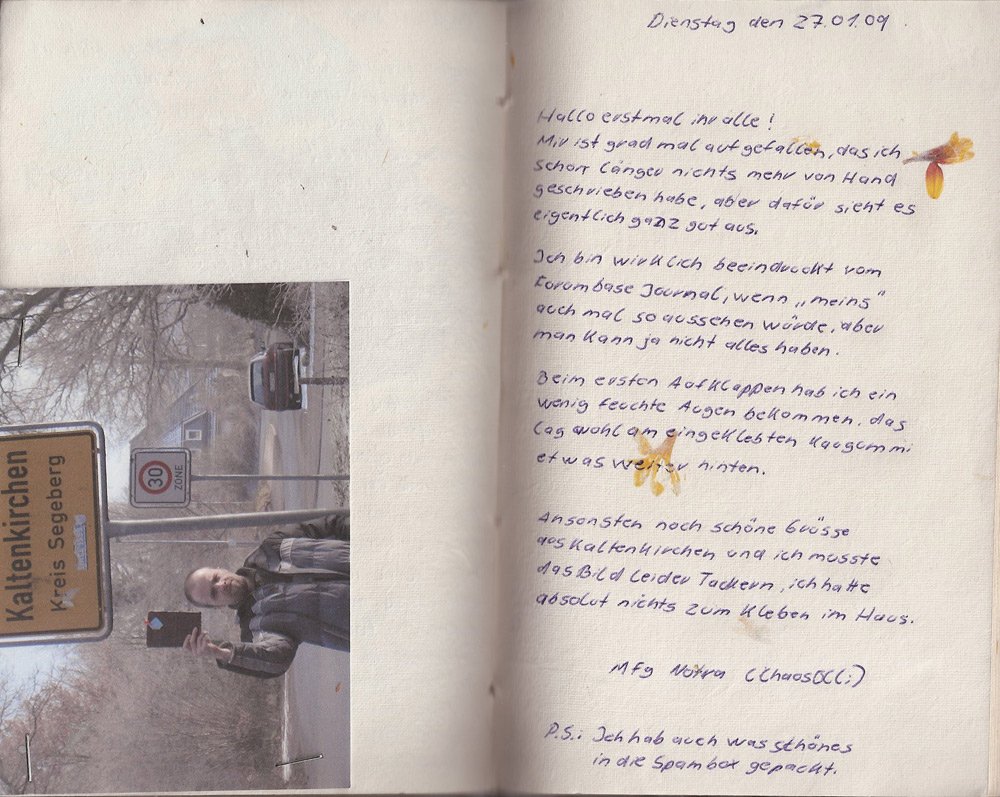 Kaltenkirchen
Kreis Segeberg
30
ZONE
Dienstag den 27.01.09.
Hallo erstmal ihr alle!
Mir ist grad mal aufgefallen, das ich
schon länger nichts mehr von Hand
geschrieben habe, aber dafür sieht es
eigentlich ganz gut aus.
Ich bin wirklich beeindruckt vom
Forumbase Journal, wenn „meins“
auch mal so aussehen würde, aber
man kann ja nicht alles haben.
Beim ersten Aufklappen hab ich ein
wenig feuchte Augen bekommen, das
lag wohl am eingeklebten Kaugummi
etwas weiter hinten.
Ansonsten noch schöne Grüsse
aus Kaltenkirchen und ich musste
das Bild leider Tackern, ich hatte
absolut nichts zum Kleben im Haus.
Mfg Notra (ChaosOlli)
P.S.: Ich hab auch was schönes
in die Spambox gepackt.